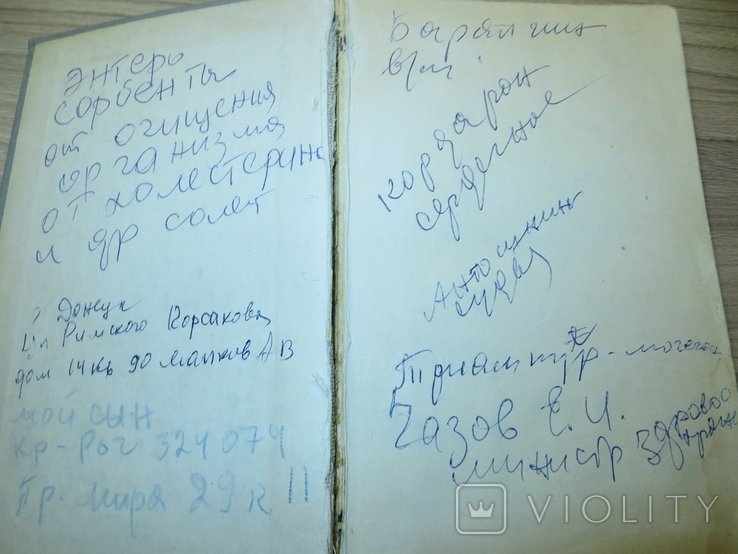 энтеро
сорбенты
от очищения
организма
от холестерина
и др солет
г Донецк
ул Римского Корсакова
дом 14 кв 90 Малков А В
мой сын
Кр-Рог 324074
Пр. мира 29 к 11
врач
кордарон
сердечное
Антошкин
Триампур - мочегон
Чазов Е. И.
министр здравоо
хран
VIOLITY